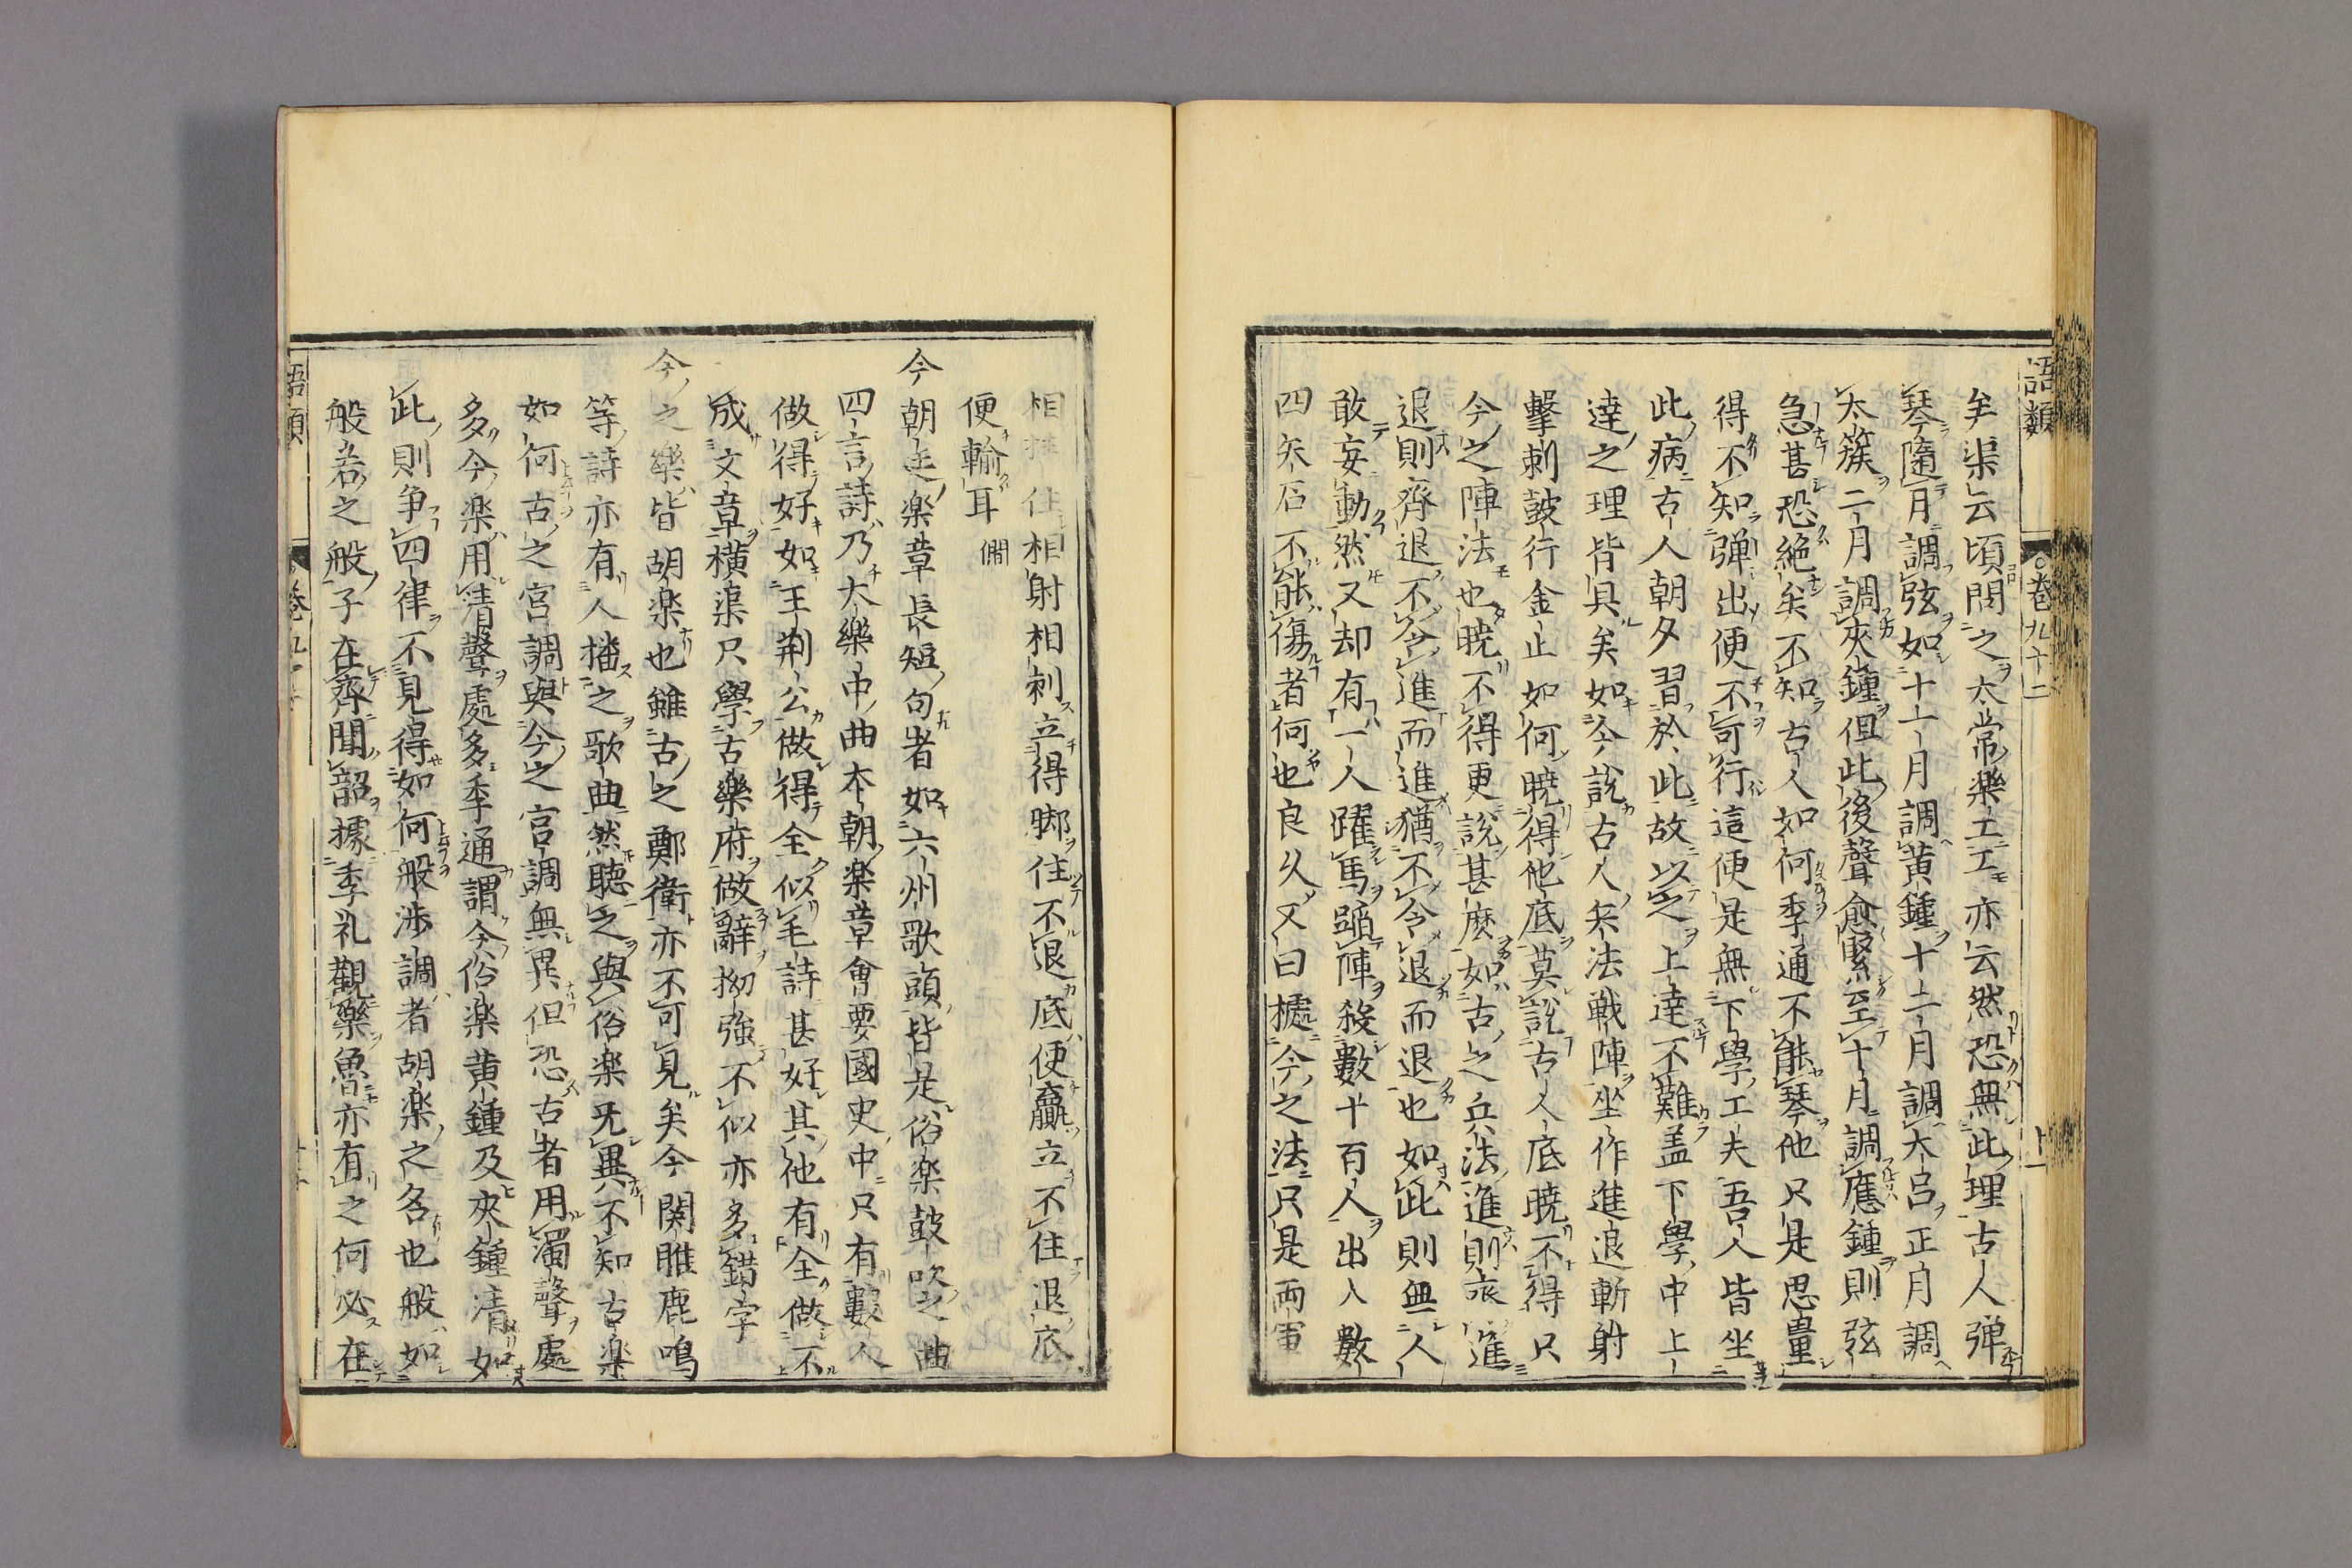 語類
卷九十二
十一
牟渠云頃問之太常樂工工亦云然恐無此理古人弾
琴隨月調弦如十一月調黃鍾十二月調大呂正月調
太簇二月調夾鍾但此後聲愈緊至十月調應鍾則弦
急甚恐絶矣不知古人如何季通不能琴他只是思量
得不知弾出便不可行這便是無下學工夫吾人皆坐
此病古人朝夕習於此故以之上達不難盖下學中上
達之理皆具矣如今說古人兵法戰陣坐作進退斬射
擊刺鼓行金止如何曉得他底莫說古人底曉不得只
今之陣法也曉不得更說甚麽如古之兵法進則齊進
退則齊退不令進而進猶不令退而退也如此則無人
敢妄動然又却有一人躍馬蹈陣殺數十百人出入數
四矢石不能傷者何也良久又曰據今之法只是兩軍
相拄住相射相刺立得脚住不退底便贏立不住退底
便輸耳 僩
今朝廷樂章長短句者如六州歌頭皆是俗楽鼓吹之曲
四言詩乃大樂中曲本朝楽章會要國史中只有數人
做得好如王荆公做得全似毛詩甚好其他有全做不
成文章橫渠只學古樂府做辭拗強不似亦多錯字
今之樂皆胡楽也雖古之鄭衛亦不可見矣今関雎鹿鳴
等詩亦有人播之歌曲然聽之與俗楽无異不知古楽
如何古之宮調與今之宮調無異但恐古者用濁聲處
多今楽用清聲處多季通謂今俗楽黄鍾及夾鍾清如
此則争四律不見得如何般涉調者胡楽之名也般如
般若之般子在齊聞韶據季札觀樂魯亦有之何必在
語類
卷九十二